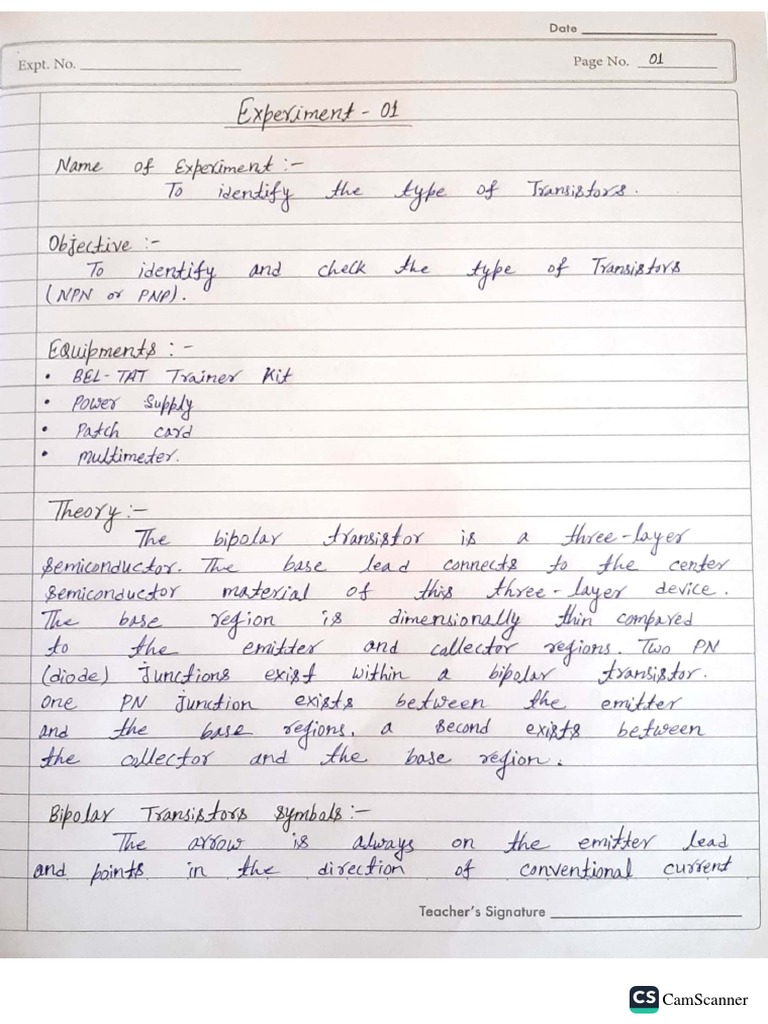 Date
Expt. No.
Page No. 01
Experiment - 01
Name of Experiment :-
To identify the type of Transistors.
Objective :-
To identify and check the type of Transistors
(NPN or PNP).
Equipments : -
• BEL-TAT Trainer Kit
• Power Supply
• Patch card
• multimeter.
Theory :-
The bipolar transistor is a three-layer
semiconductor. The base lead connects to the center
semiconductor material of this three-layer device.
The base region is dimensionally thin compared
to the emitter and collector regions. Two PN
(diode) junctions exist within a bipolar transistor.
one PN junction exists between the emitter
and the base regions, a second exists between
the collector and the base region.
Bipolar Transistors symbols :-
The arrow is always on the emitter lead
and points in the direction of conventional current
Teacher's Signature
CS CamScanner